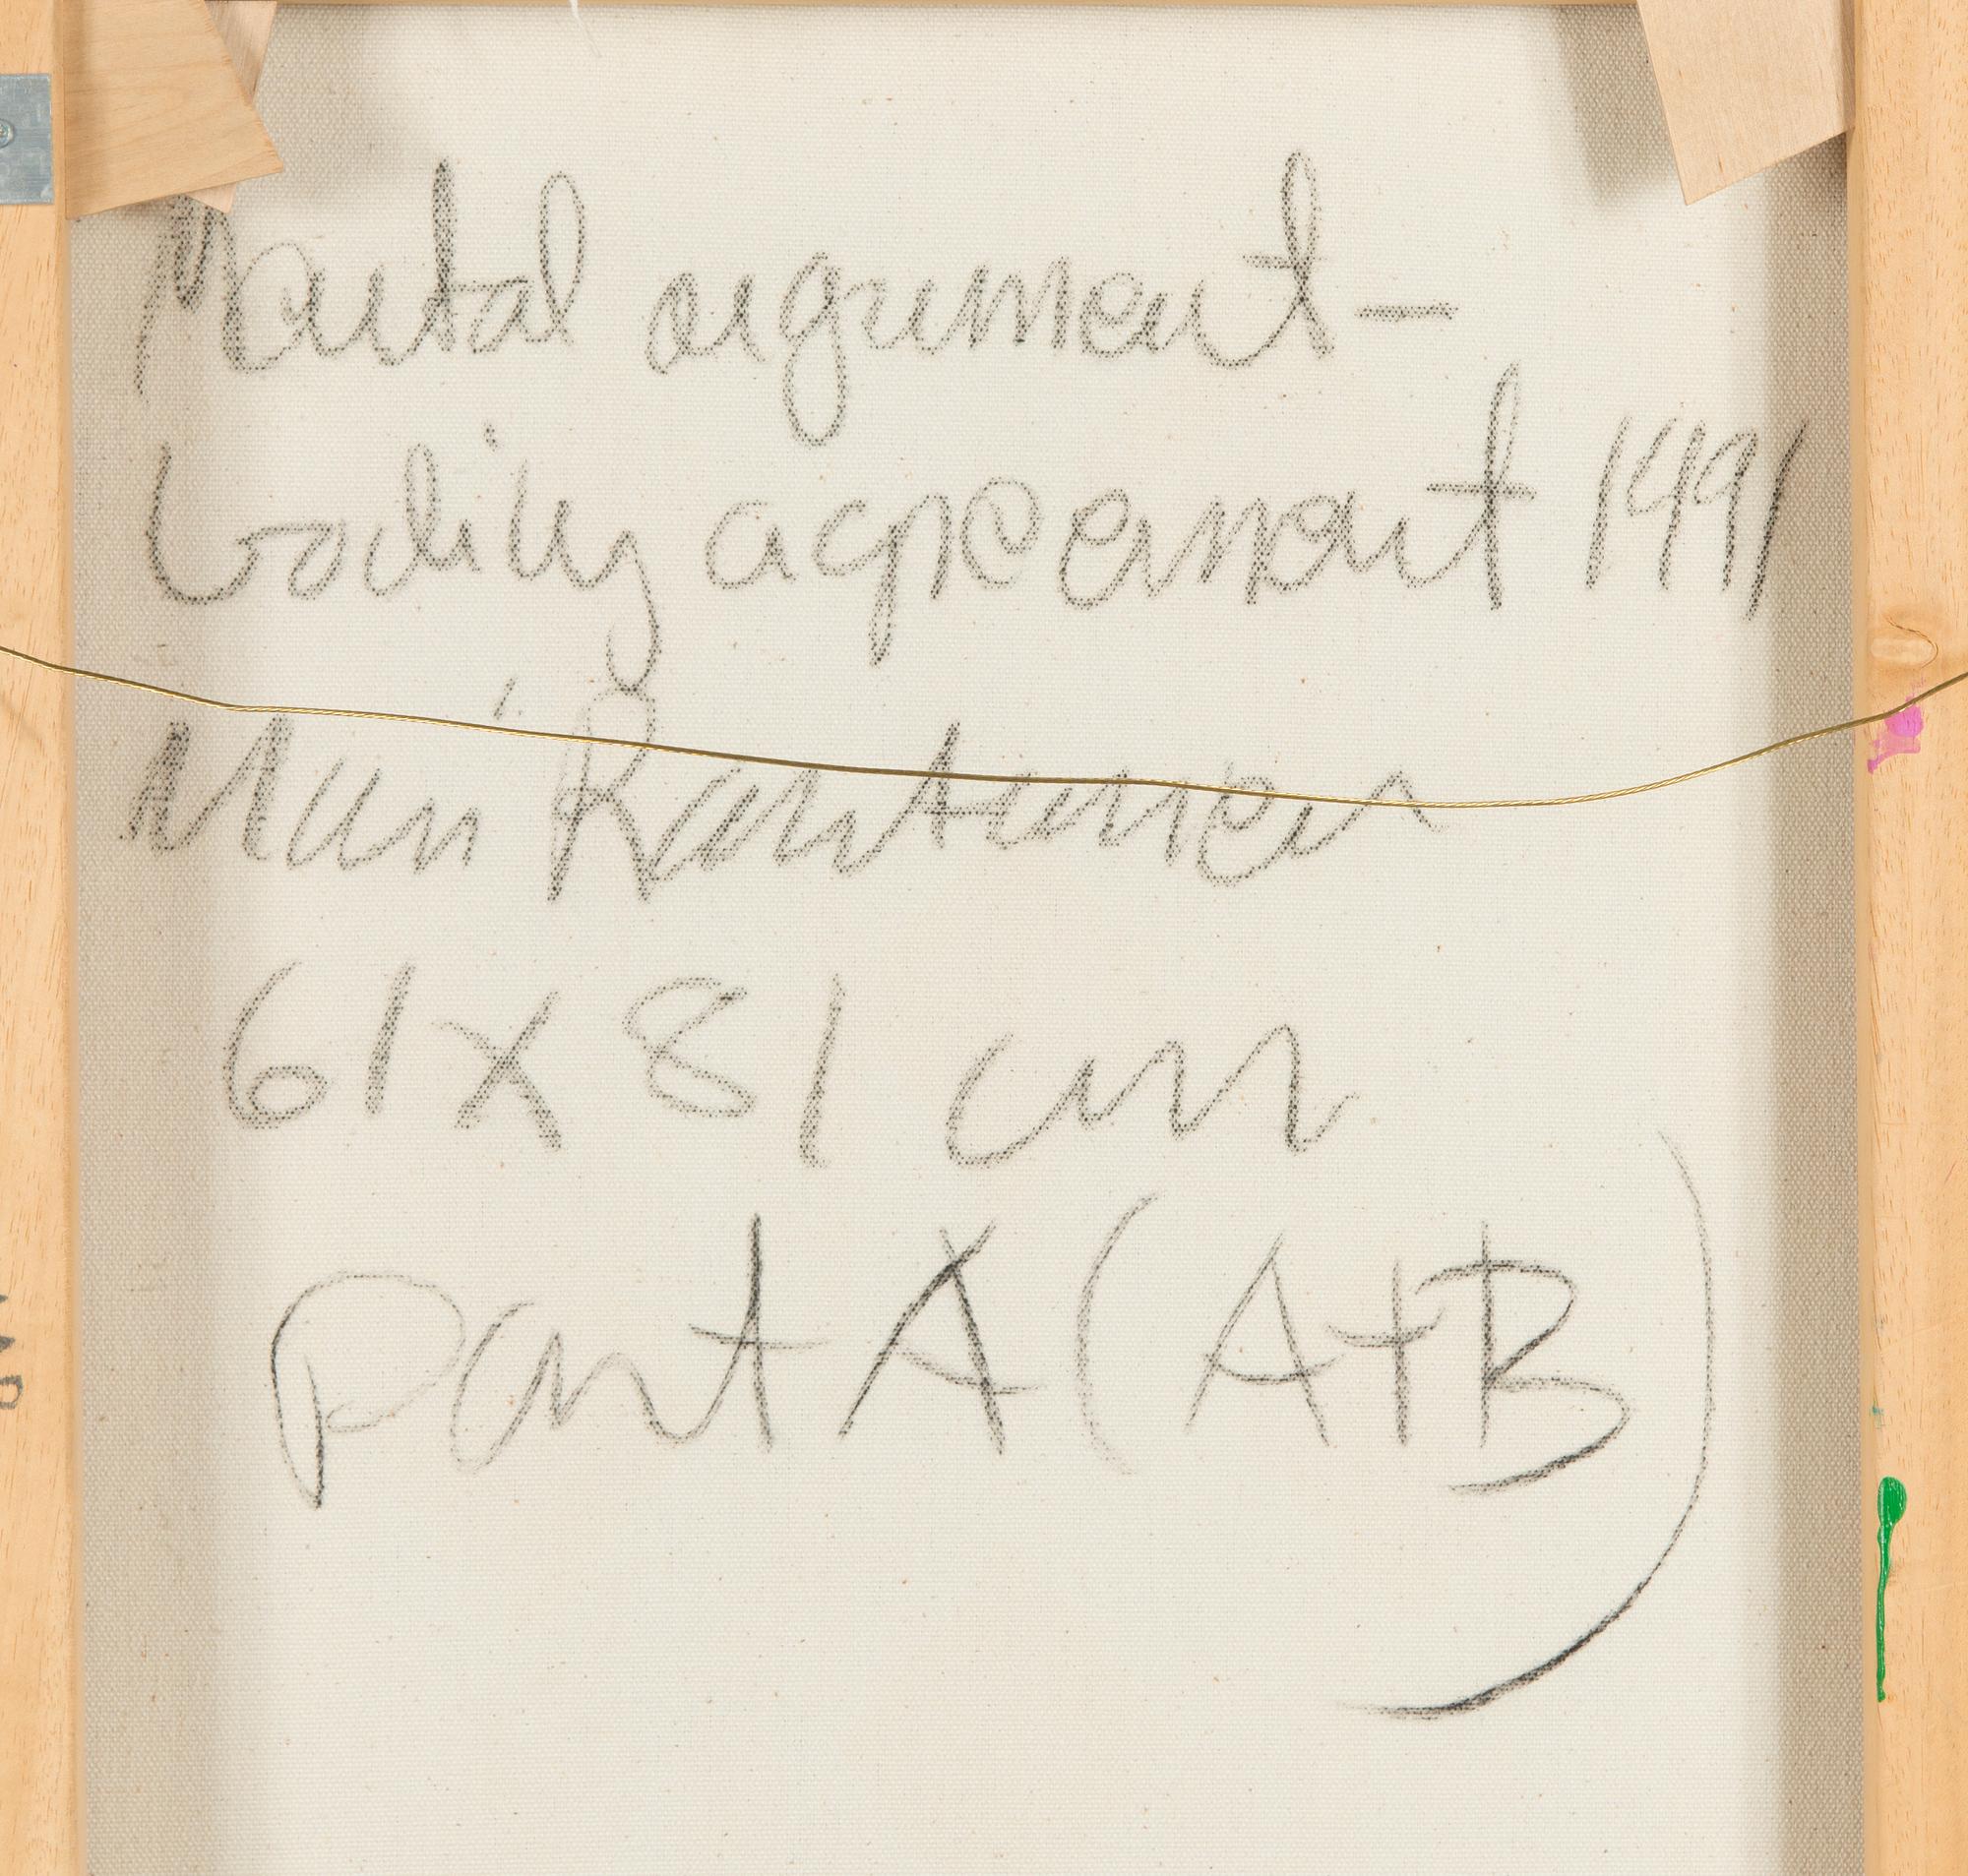 Marital argument—
bodily agreement 1991
Mari Rantanen
61 x 81 cm
Part A (A+B)